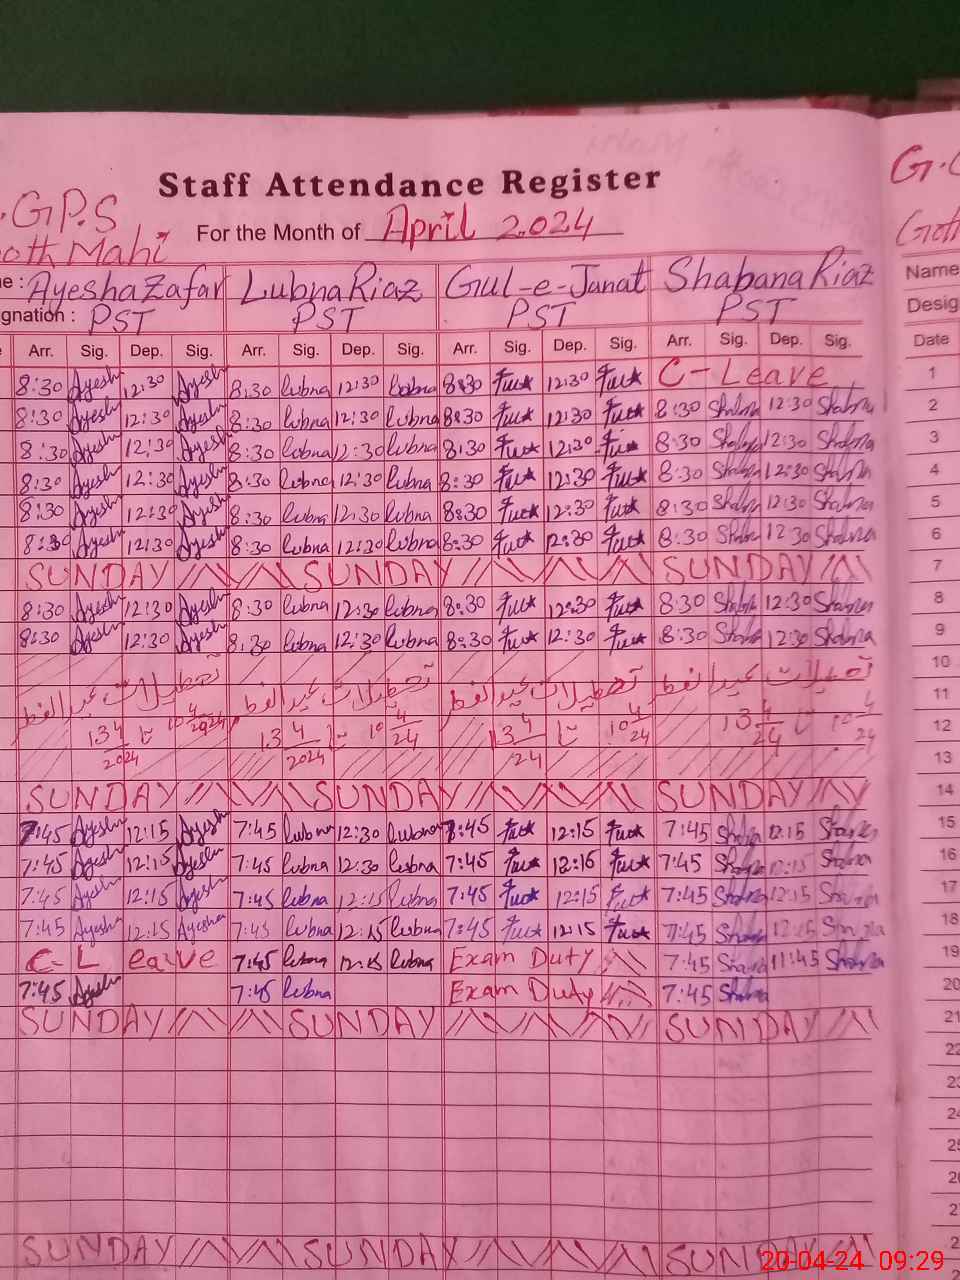 Staff Attendance Register
G.P.S
For the Month of April 2024
Mahi
Ayesha Zafar Lubna Riaz Gul-e-Janat Shabana Riaz Name
gnation : PST PST PST PST Desig
Arr. Sig. Dep. Sig. Arr. Sig. Dep. Sig. Arr. Sig. Dep. Sig. Arr. Sig. Dep. Sig. Date
8:30 Ayesha 12:30 Ayesha 8:30 Lubna 12:30 Lubna 8:30 12:30 C-Leave 1
8:30 Ayesha 12:30 Ayesha 8:30 Lubna 12:30 Lubna 8:30 12:30 8:30 Shabna 12:30 Shabna 2
8:30 Ayesha 12:30 Ayesha 8:30 Lubna 12:30 Lubna 8:30 12:30 8:30 Shabna 12:30 Shabna 3
8:30 Ayesha 12:30 Ayesha 8:30 Lubna 12:30 Lubna 8:30 12:30 8:30 Shabna 12:30 Shabna 4
8:30 Ayesha 12:30 Ayesha 8:30 Lubna 12:30 Lubna 8:30 12:30 8:30 Shabna 12:30 Shabna 5
8:30 Ayesha 12:30 Ayesha 8:30 Lubna 12:30 Lubna 8:30 12:30 8:30 Shabna 12:30 Shabna 6
SUNDAY SUNDAY SUNDAY 7
8:30 Ayesha 12:30 Ayesha 8:30 Lubna 12:30 Lubna 8:30 12:30 8:30 Shabna 12:30 Shabna 8
8:30 Ayesha 12:30 Ayesha 8:30 Lubna 12:30 Lubna 8:30 12:30 8:30 Shabna 12:30 Shabna 9
10
تعطیلات عید الفطر تعطیلات عید الفطر تعطیلات عید الفطر تعطیلات عید الفطر 11
10 4/2024 تا 13 4/2024 10 4/24 تا 13 4/2024 10 4/24 تا 13 4/24 10 4/24 تا 13 4/24 12
13
SUNDAY SUNDAY SUNDAY 14
7:45 Ayesha 12:15 Ayesha 7:45 Lubna 12:30 Lubna 7:45 12:15 7:45 Shabna 12:15 Shabna 15
7:45 Ayesha 12:15 Ayesha 7:45 Lubna 12:30 Lubna 7:45 12:16 7:45 Shabna 12:15 Shabna 16
7:45 Ayesha 12:15 Ayesha 7:45 Lubna 12:15 Lubna 7:45 12:15 7:45 Shabna 12:15 Shabna 17
7:45 Ayesha 12:15 Ayesha 7:45 Lubna 12:15 Lubna 7:45 12:15 7:45 Shabna 12:15 Shabna 18
C-Leave 7:45 Lubna 12:15 Lubna Exam Duty 7:45 Shabna 11:45 Shabna 19
7:45 Ayesha 7:45 Lubna Exam Duty 7:45 Shabna 20
SUNDAY SUNDAY SUNDAY 21
22
24
25
SUNDAY SUNDAY SUNDAY
20-04-24 09:29